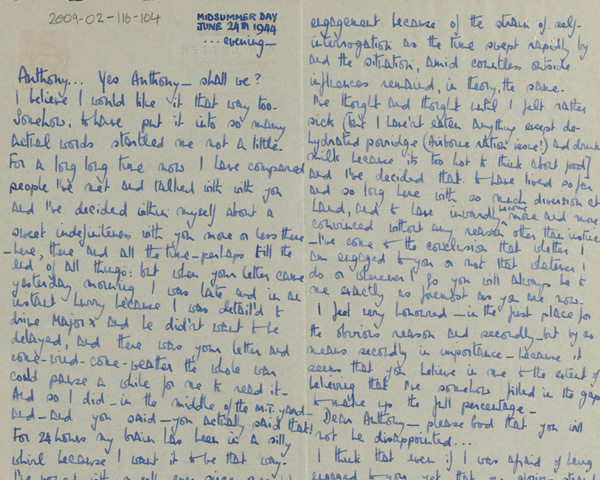 2009-02-116-104
MIDSUMMER DAY
JUNE 24th 1944
.... evening_
Anthony... Yes Anthony_ shall we?
I believe I would like it that way too.
Somehow, to have put it into so many
actual words startled me not a little.
For a long long time now I have compared
people I've met and talked with with you
and I've decided within myself about a
sweet indefiniteness with you more or less there
_here, there and all the time_perhaps till the
end of all things: but when your letter came
yesterday morning I was late and in an
instant hurry because I was detail'd to
drive Major X and he didn't want to be
delayed, and there was your letter and
come-wind-come-weather the whole war
could pause a while for me to read it_
And so I did_in the middle of the M.T. yard_
and_and you said_you actually said that!
For 24 hours my brain has been in a silly
whirl because I want it to be that way.
engagement because of the strain of self-
interrogation as the time swept rapidly by
and the situation, amid countless outside
influences remained, in theory, the same.
I've thought and thought until I felt rather
sick (but I haven't eaten anything except de-
hydrated porridge (Airborne ration issue!) and drunk
milk because its too hot to think about food)
and I've decided that to have lived so far
and so long here with so much diversion at
hand, and to have inwardly more and more
convinced without any reason other than instinct
_I've come to the conclusion that whether I
am engaged to you or not that whatever I
do or wherever I go you will always be to
me exactly as foremost as you are now.
I feel very honoured_in the first place for
the obvious reason and secondly_but by no
means secondly in importance_because it
seems that you believe in me to the extent of
believing that I've somehow filled in the gaps
to make up the full percentage_
Dear Anthony_ please God that you will
not be disappointed...
I think that even if I was afraid of being